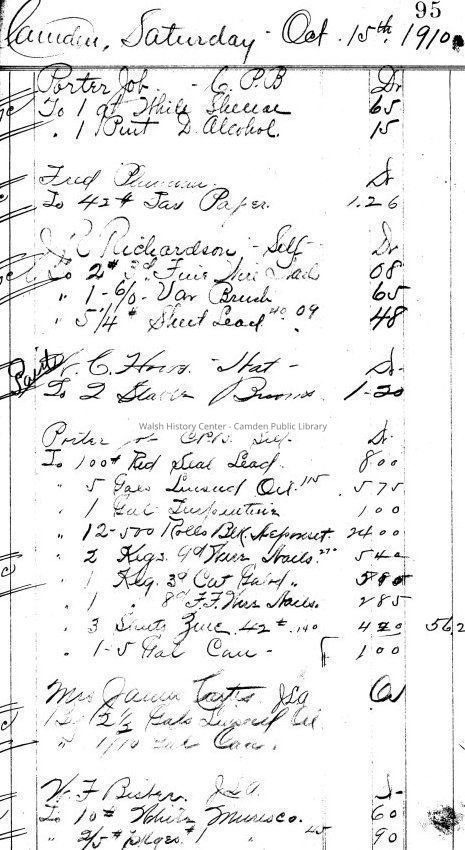 95
Camden, Saturday Oct. 15th 1910.
Porter Job. - C. P. B Dr
To 1 qt White Shellac 65
" 1 Pint D. Alcohol. 15
Fred Dr
To 42# Tar Paper. 1.26
J. R. Richardson - Self - Dr
To 2# 3d Fine Wire Nail 08
" 1 - 6/0 - Var Brush 65
" 5 1/4# Sheet Lead 09 48
Paid W. C. Howe - Dr
To 2 Brooms 1-20
Walsh History Center - Camden Public Library
Porter Job C.P.B. Self Dr
To 100# Red Seal Lead. 8 00
" 5 Gals Linseed Oil 115 5 75
" 1 Gal Turpentine 1 00
" 12-500 Rolls Blk Neponset. 24 00
" 2 Kegs 9d Wire Nails. 270 5 40
" 1 Keg 3d Cut
" 1 " 8d F.F. Wire Nails. 2 85
" 3 Sheets Zinc 42# 140 4 20 562
" 1-5 Gal Can - 1 00
Mrs
2 1/2 Gals Linseed Oil
" 1/10 Gal Can.
W. F.
To 10# White Muresco. 60
" 2/5# " " 45 90